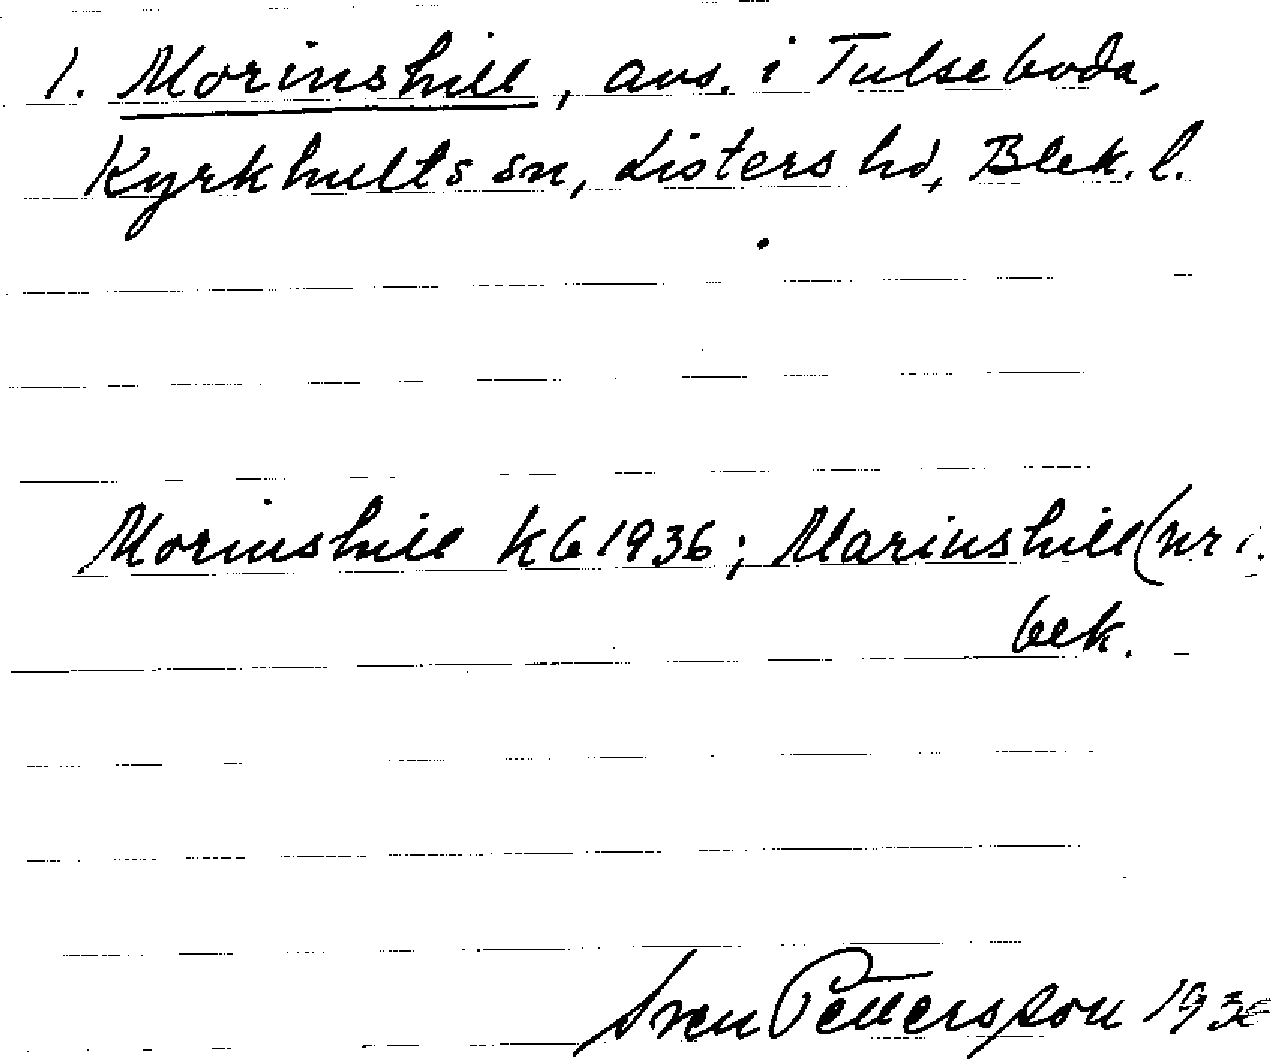 1. Morinshill, avs. i Tulseboda,
Kyrkhults sn, Listers hd, Blek. l.
Morinshill Kb 1936; Marinshill (nr i.
bek.
Sven Pettersson 1936